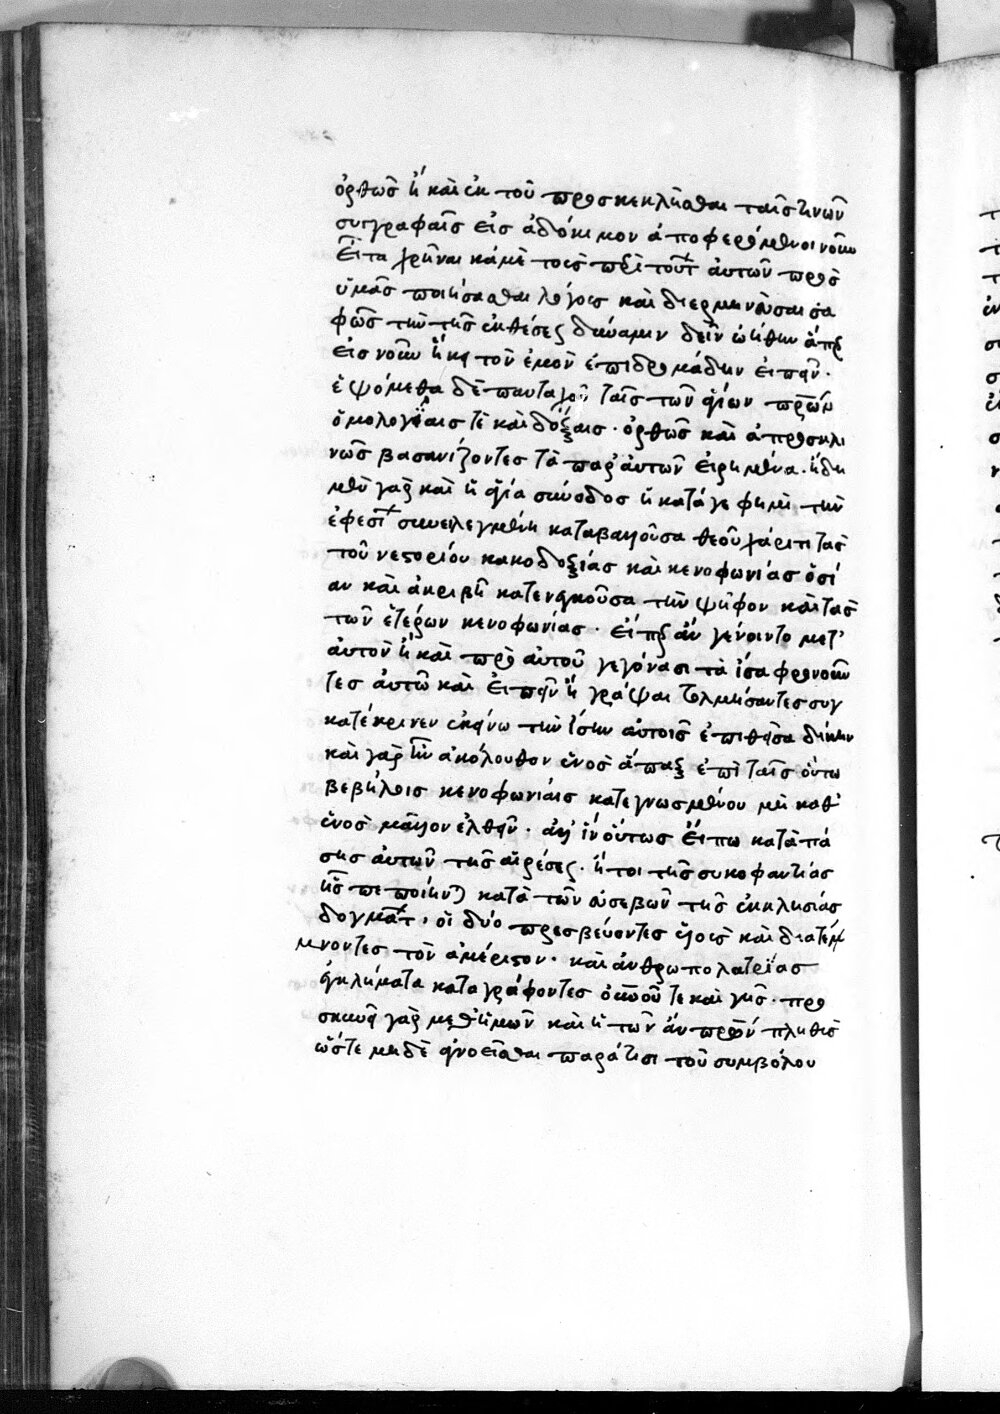 ὀρθῶσ ἢ καὶ ἐκ τοῦ προσκεκλῆσθαι ταῖς τινῶν
συγγραφαῖσ εἰσ ἀδόκιμον ἀποφερόμενοι νοῦν
εἶτα χρῆναι κἀμὲ τοὺσ περὶ τούτων αὐτῶν πρὸσ
ὑμᾶσ ποιήσασθαι λόγουσ καὶ διερμηνεῦσαι σα
φῶσ τὴν τῆσ ἐκθέσεωσ δύναμιν δεῖν ὠήθην ἅπερ
εἰσ νοῦν ἥκει τὸν ἐμὸν ἐπιδρομάδην εἰπεῖν.
ἑψόμεθα δὲ πανταχοῦ ταῖσ τῶν ἁγίων πρων
ὁμολογίαισ τὲ καὶ δόξαισ. ὀρθῶσ καὶ ἀπροσκλι
νῶσ βασανίζοντεσ τὰ παρ' αὐτῶν εἰρημένα. ἤδη
μὲν γὰρ καὶ ἡ ἁγία σύνοδοσ ἡ κατά γε φημὶ τὴν
ἐφεσίων συνειλεγμένη καταβαλοῦσα θεοῦ χάριτι τὰσ
τοῦ νεστορίου κακοδοξίασ καὶ κενοφωνίασ ὁσί
αν καὶ ἀκριβῆ κατενεγκοῦσα τὴν ψῆφον καὶ τὰσ
τῶν ἑτέρων κενοφωνίασ. εἵπερ ἂν γένοιντο μετ'
αὐτὸν ἢ καὶ πρὸ αὐτοῦ γεγόνασι τὰ ἴσα φρονοῦν
τεσ αὐτῶ καὶ εἰπεῖν ἢ γράψαι τολμήσαντεσ συγ
κατέκρινεν ἐκείνω τὴν ἴσην αὐτοῖσ ἐπιθεῖσα δίκην
καὶ γὰρ ἦν ἀκόλουθον ἑνὸσ ἅπαξ ἐπὶ ταῖσ οὕτω
βεβήλοισ κενοφωνίαισ κατεγνωσμένου μὴ καθ'
ἑνὸσ μᾶλλον ἐλθεῖν. ἀλλ' ἵν' οὕτωσ εἴπω κατὰ πά
σησ αὐτῶν τῆσ αἱρέσεωσ. ἤτοι τῆσ συκοφαντίασ
ἧσ πεποίηνται κατὰ τῶν εὐσεβῶν τῆσ ἐκκλησίασ
δογμάτων. οἱ δύο πρεσβεύοντεσ υἱοὺσ καὶ διατέμ
μνοντεσ τὸν ἀμέριστον. καὶ ἀνθρωπολατρείασ
ἐγκλήματα καταγράφοντεσ οὐνοῦ τε καὶ γῆσ. προ
σκυνεῖ γὰρ μεθ' ἡμῶν καὶ ἡ τῶν ἄνω πνων πληθὺσ
ὥστε μηδὲ ἀγνοεῖσθαι παρά τισι τοῦ συμβόλου